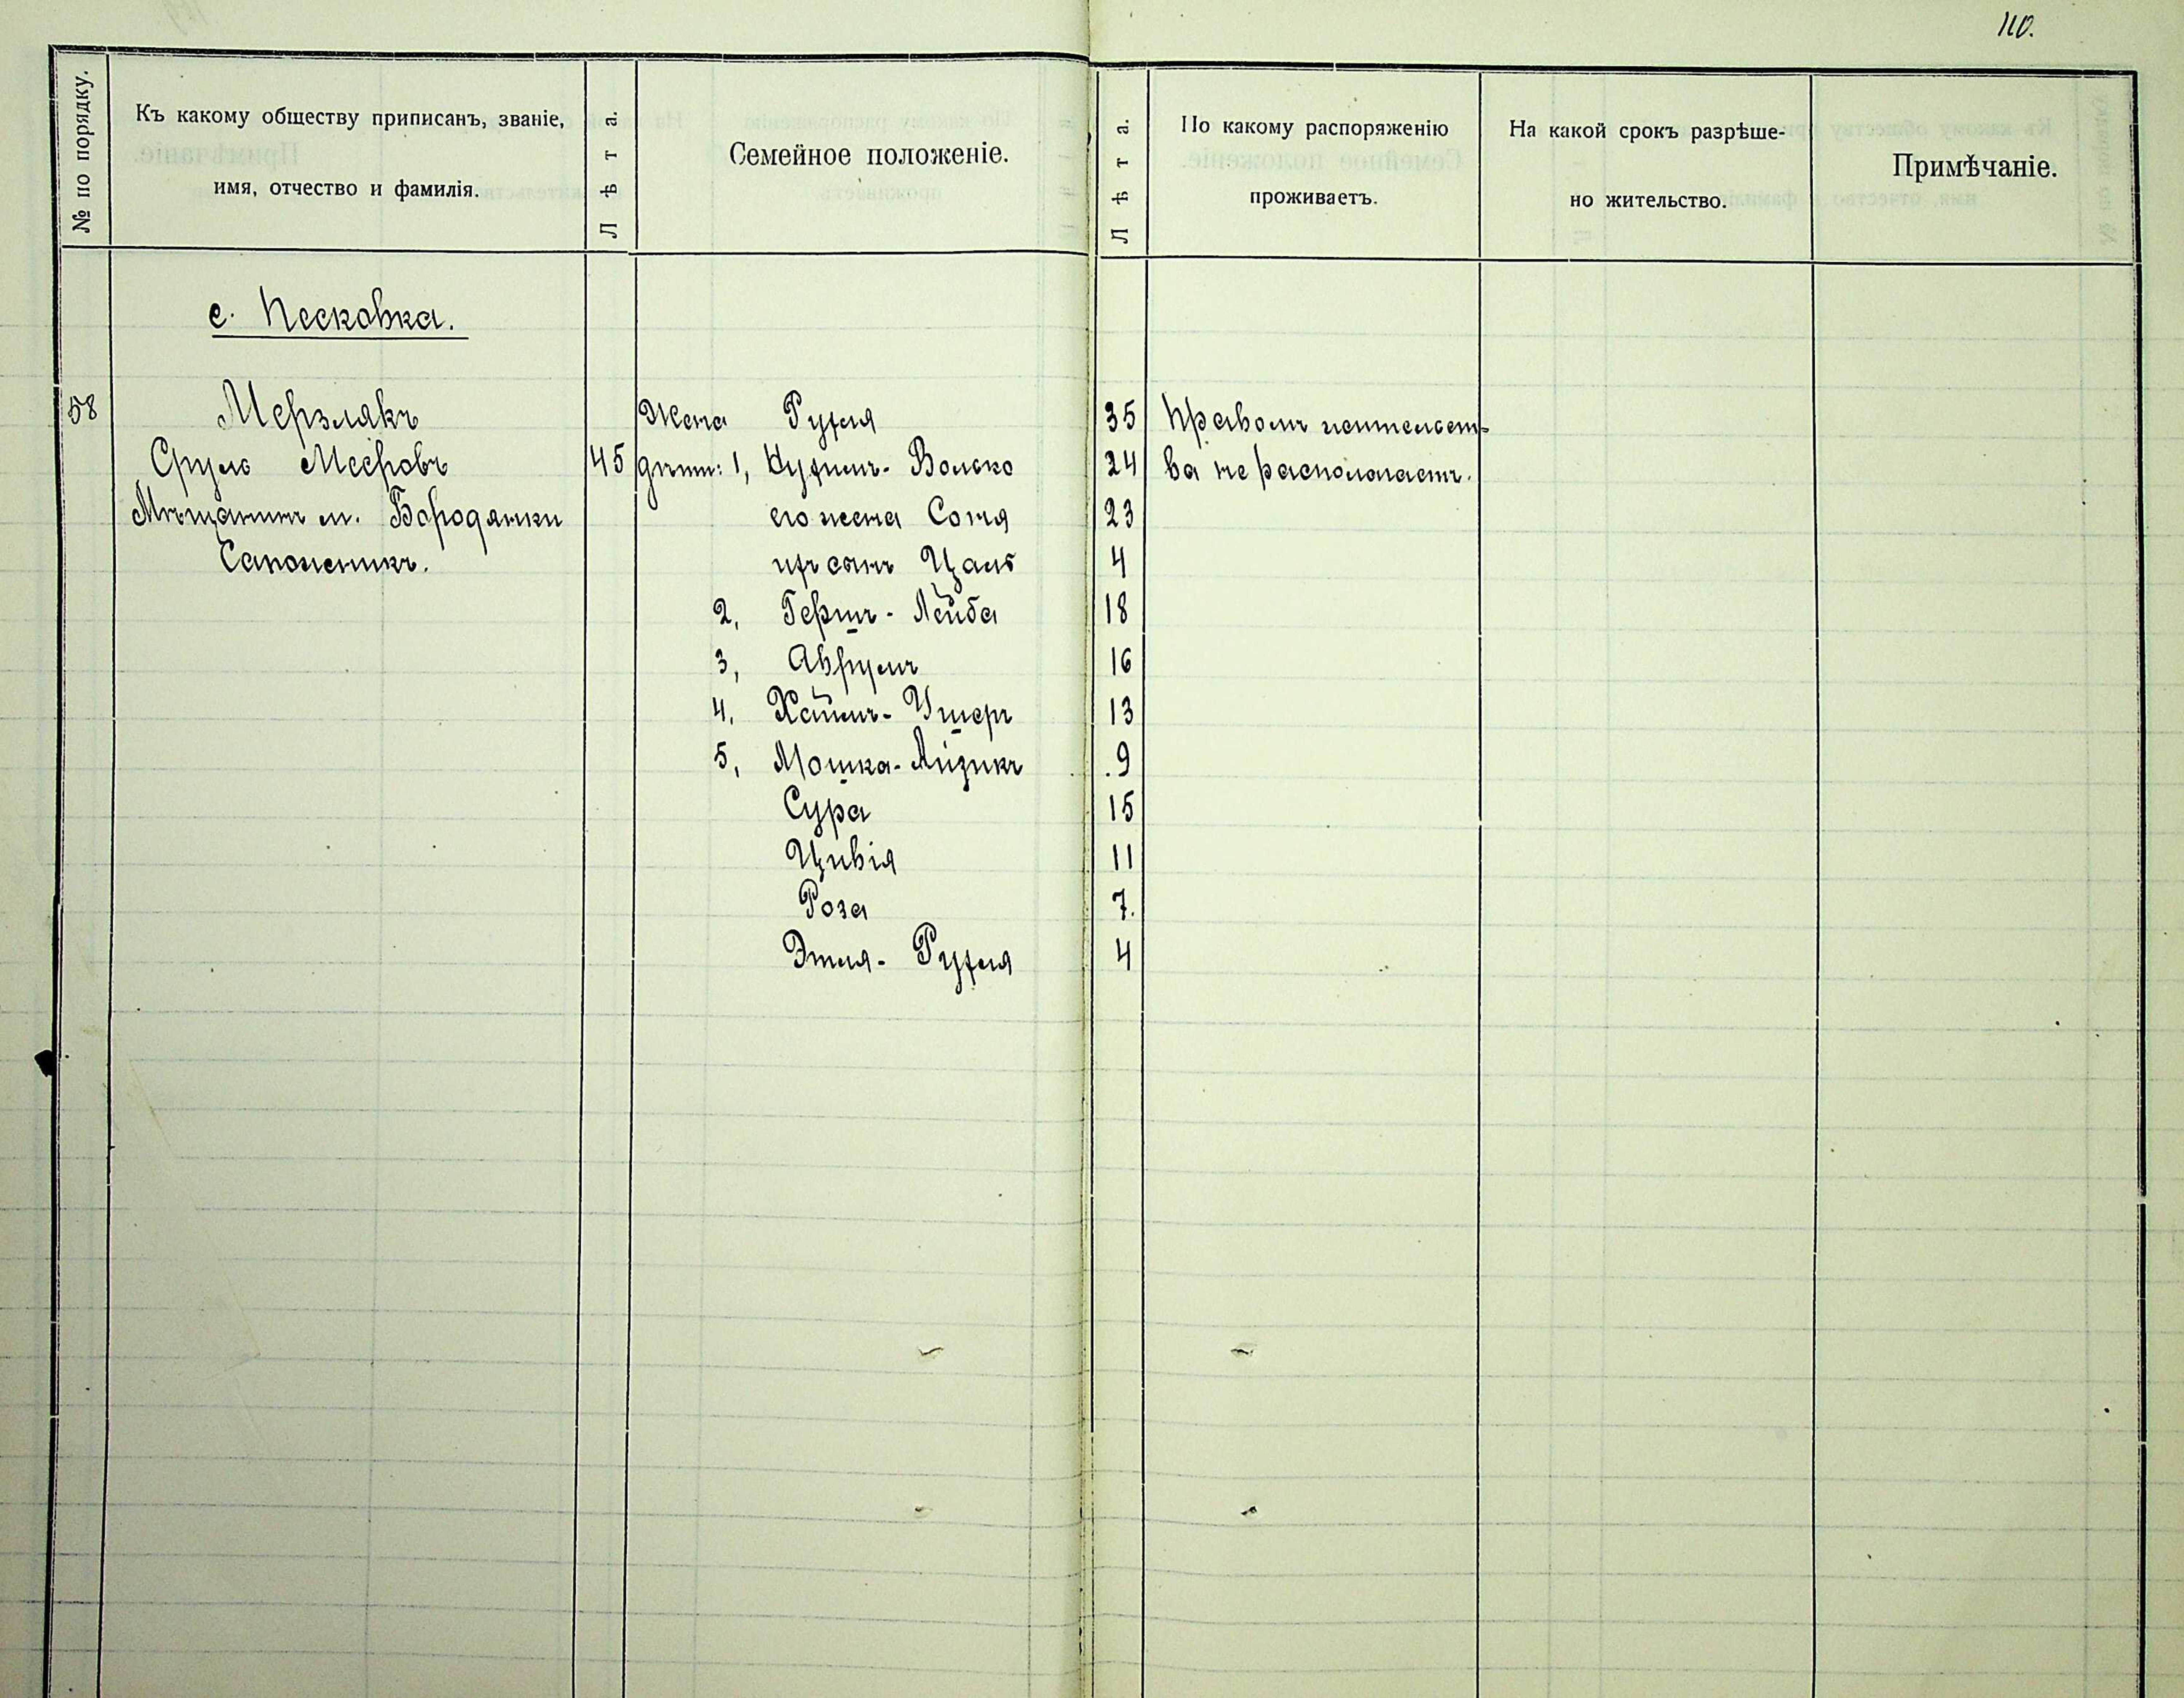 110.
№ по порядку.
Къ какому обществу приписанъ, званіе,
имя, отчество и фамилія.
Лѣта.
Семейное положеніе.
Лѣта.
По какому распоряженію
проживаетъ.
На какой срокъ разрѣше-
но жительство.
Примѣчаніе.
с. Песковка.
58 Мерзлякъ Жена Рухля 35 Правомъ жительст-
Сруль Меєровъ 45 дѣти: 1, Нухимъ-Волько 24 ва не располагаетъ.
Мѣщанинъ м. Бородянки его жена Соня 23
Сапожникъ. ихъ сынъ Цаль 4
2, Гершъ-Лейба 18
3, Аврумъ 16
4, Хаимъ-Ушеръ 13
5, Мошка-Айзикъ 9
Сура 15
Цивія 11
Роза 7.
Этля-Рухля 4